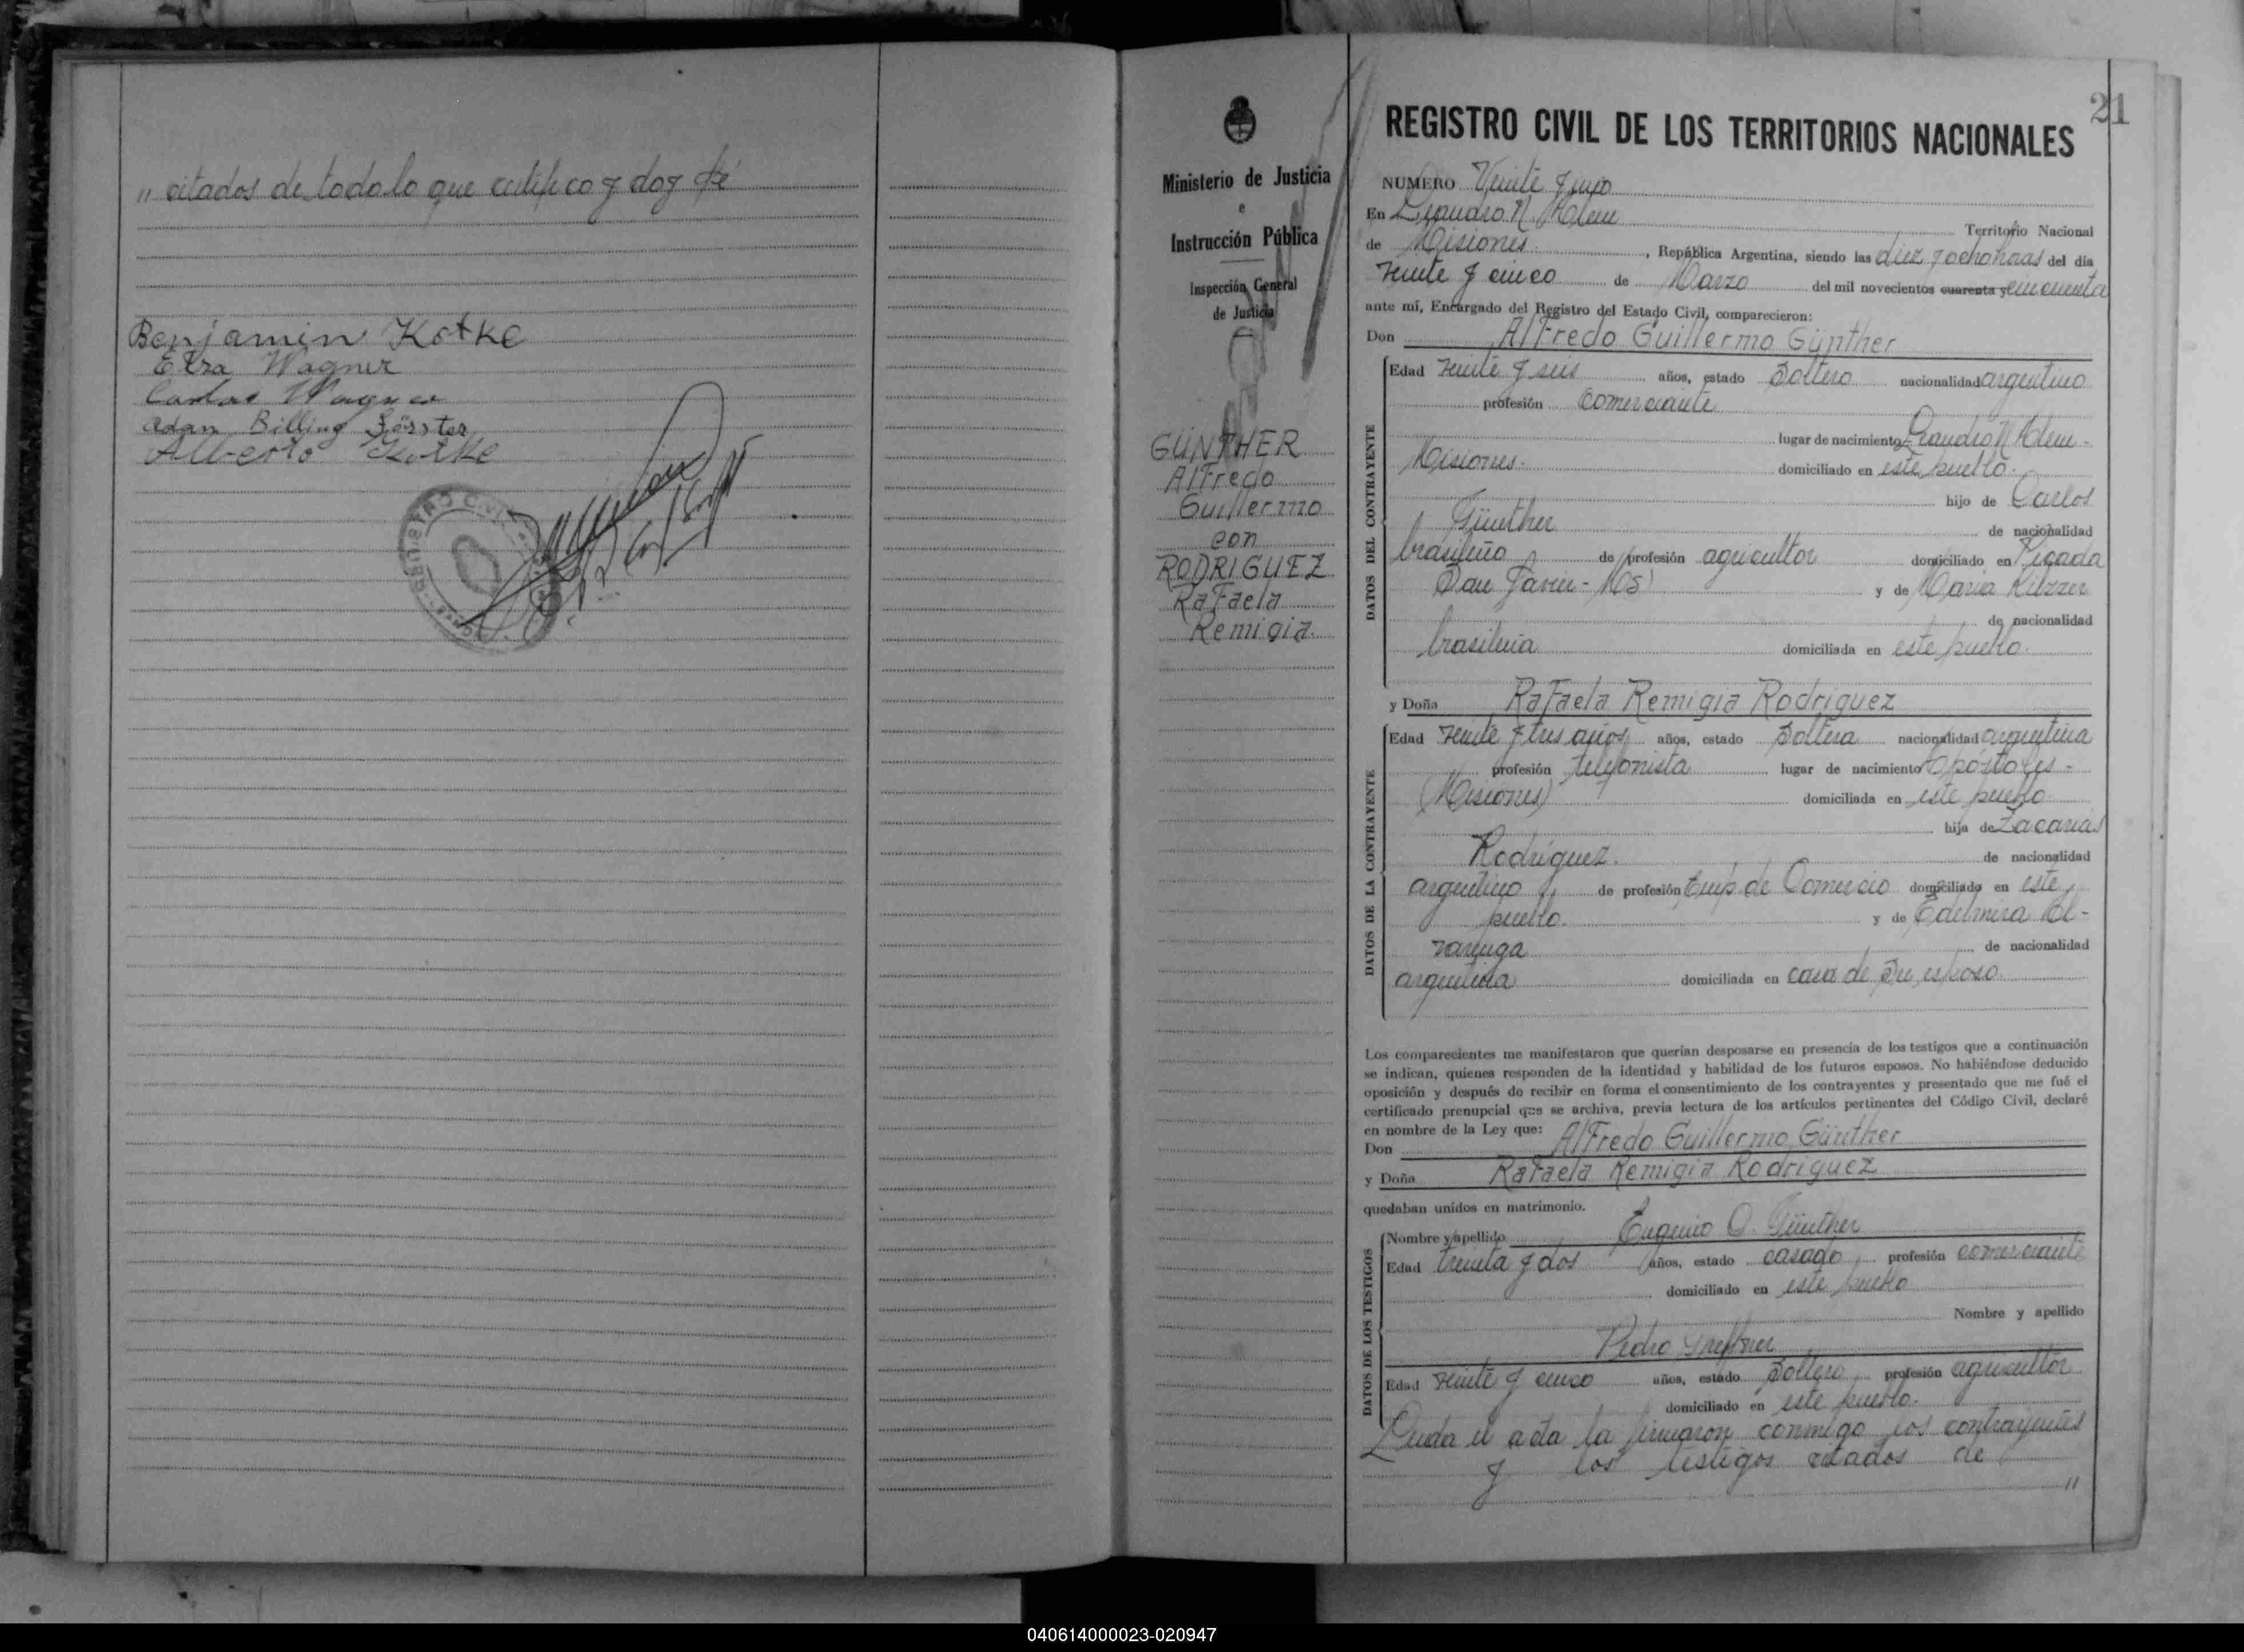 " citados de todo lo que certifico y doy fé
Benjamin Kotke
Elza Wagner
Carlos Wagner
Adan Billing Förster
Alberto Kotke
REGISTRO CIVIL
Ministerio de Justicia
e
Instrucción Pública
Inspección General
de Justicia
GÜNTHER
Alfredo
Guillermo
con
RODRIGUEZ
Rafaela
Remigia
21
REGISTRO CIVIL DE LOS TERRITORIOS NACIONALES
NUMERO Veinte y uno
En Leandro N Alem Territorio Nacional
de Misiones, República Argentina, siendo las diez y ocho horas del día
veinte y cinco de Marzo del mil novecientos cuarenta y cincuenta
ante mí, Encargado del Registro del Estado Civil, comparecieron:
Don Alfredo Guillermo Günther
DATOS DEL CONTRAYENTE
Edad veinte y seis años, estado Soltero nacionalidad argentino
profesión Comerciante
lugar de nacimiento Leandro N Alem -
Misiones. domiciliado en este pueblo.
hijo de Carlos
Günther de nacionalidad
brasileño de profesión agricultor domiciliado en Picada
San Javier - Ms y de Maria
de nacionalidad
brasileña domiciliada en este pueblo.
y Doña Rafaela Remigia Rodriguez
DATOS DE LA CONTRAYENTE
Edad veinte y tres años años, estado Soltera nacionalidad argentina
profesión telefonista lugar de nacimiento Apóstoles -
(Misiones) domiciliada en este pueblo
hija de Zacarias
Rodriguez. de nacionalidad
argentino de profesión Emp. de Comercio domiciliado en este
pueblo. y de Edelmira Al-
varenga de nacionalidad
argentina domiciliada en casa de su esposo.
Los comparecientes me manifestaron que querían desposarse en presencia de los testigos que a continuación
se indican, quienes responden de la identidad y habilidad de los futuros esposos. No habiéndose deducido
oposición y después de recibir en forma el consentimiento de los contrayentes y presentado que me fué el
certificado prenupcial que se archiva, previa lectura de los artículos pertinentes del Código Civil, declaré
en nombre de la Ley que:
Don Alfredo Guillermo Günther
y Doña Rafaela Remigia Rodriguez
quedaban unidos en matrimonio.
DATOS DE LOS TESTIGOS
Nombre y apellido Eugenio O. Günther
Edad treinta y dos años, estado casado profesión comerciante
domiciliado en este pueblo
Nombre y apellido
Pedro
Edad veinte y cinco años, estado Soltero profesión agricultor
domiciliado en este pueblo.
Leida el acta la firmaron conmigo los contrayentes
y los testigos citados de
"
040614000023-020947